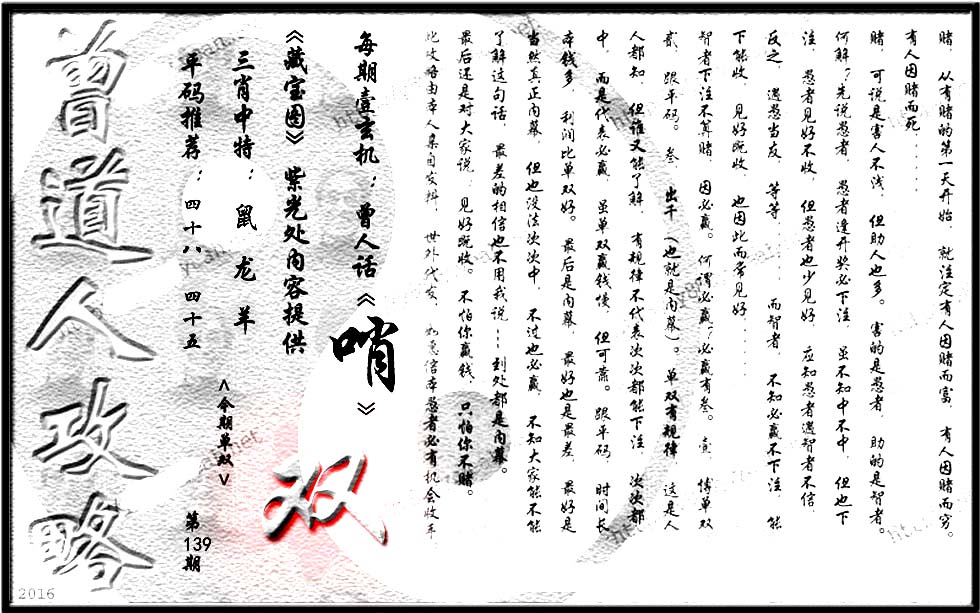 赌、从有赌的第一天开始，就注定有人因赌而富，有人因赌而穷。
有人因赌而死......
赌，可说是害人不浅，但助人也多。害的是愚者，助的是智者。
何解？先说愚者，愚者逢开奖必下注，虽不知中不中，但也下
注，愚者见好不收，但愚者也少见好，应知愚者遇智者不信，
反之，遇愚当友，等等......而智者，不知必赢不下注，能
下能收，见好既收，也因此而常见好......
智者下注不算赌，因必赢。何谓必赢？必赢有叁。壹，博单双，
贰，跟平码。叁，出千（也就是内幕）。单双有规律，这是人
人都知，但谁又能了解，有规律不代表次次都能下注，次次都
中，而是代表必赢，虽单双赢钱慢，但可靠。跟平码，时间长，
本钱多，利润比单双好。最后是内幕，最好也是最差，最好是
当然真正内幕，但也没法次次中，不过也必赢，不知大家能不能
了解这句话，最差的相信也不用我说...到处都是内幕。
最后还是对大家说，见好既收。不怕你赢钱、只怕你不赌。
此攻略由本人亲自发料，世外代发，如愿信本愚者必有机会收手.
每期壹玄机：曾人话《哨》
《藏宝图》紫光处内容提供
三肖中特：鼠 龙 羊
平码推荐：四十八 四十五
<今期单双>
双
第139期
曾道人攻略
2016